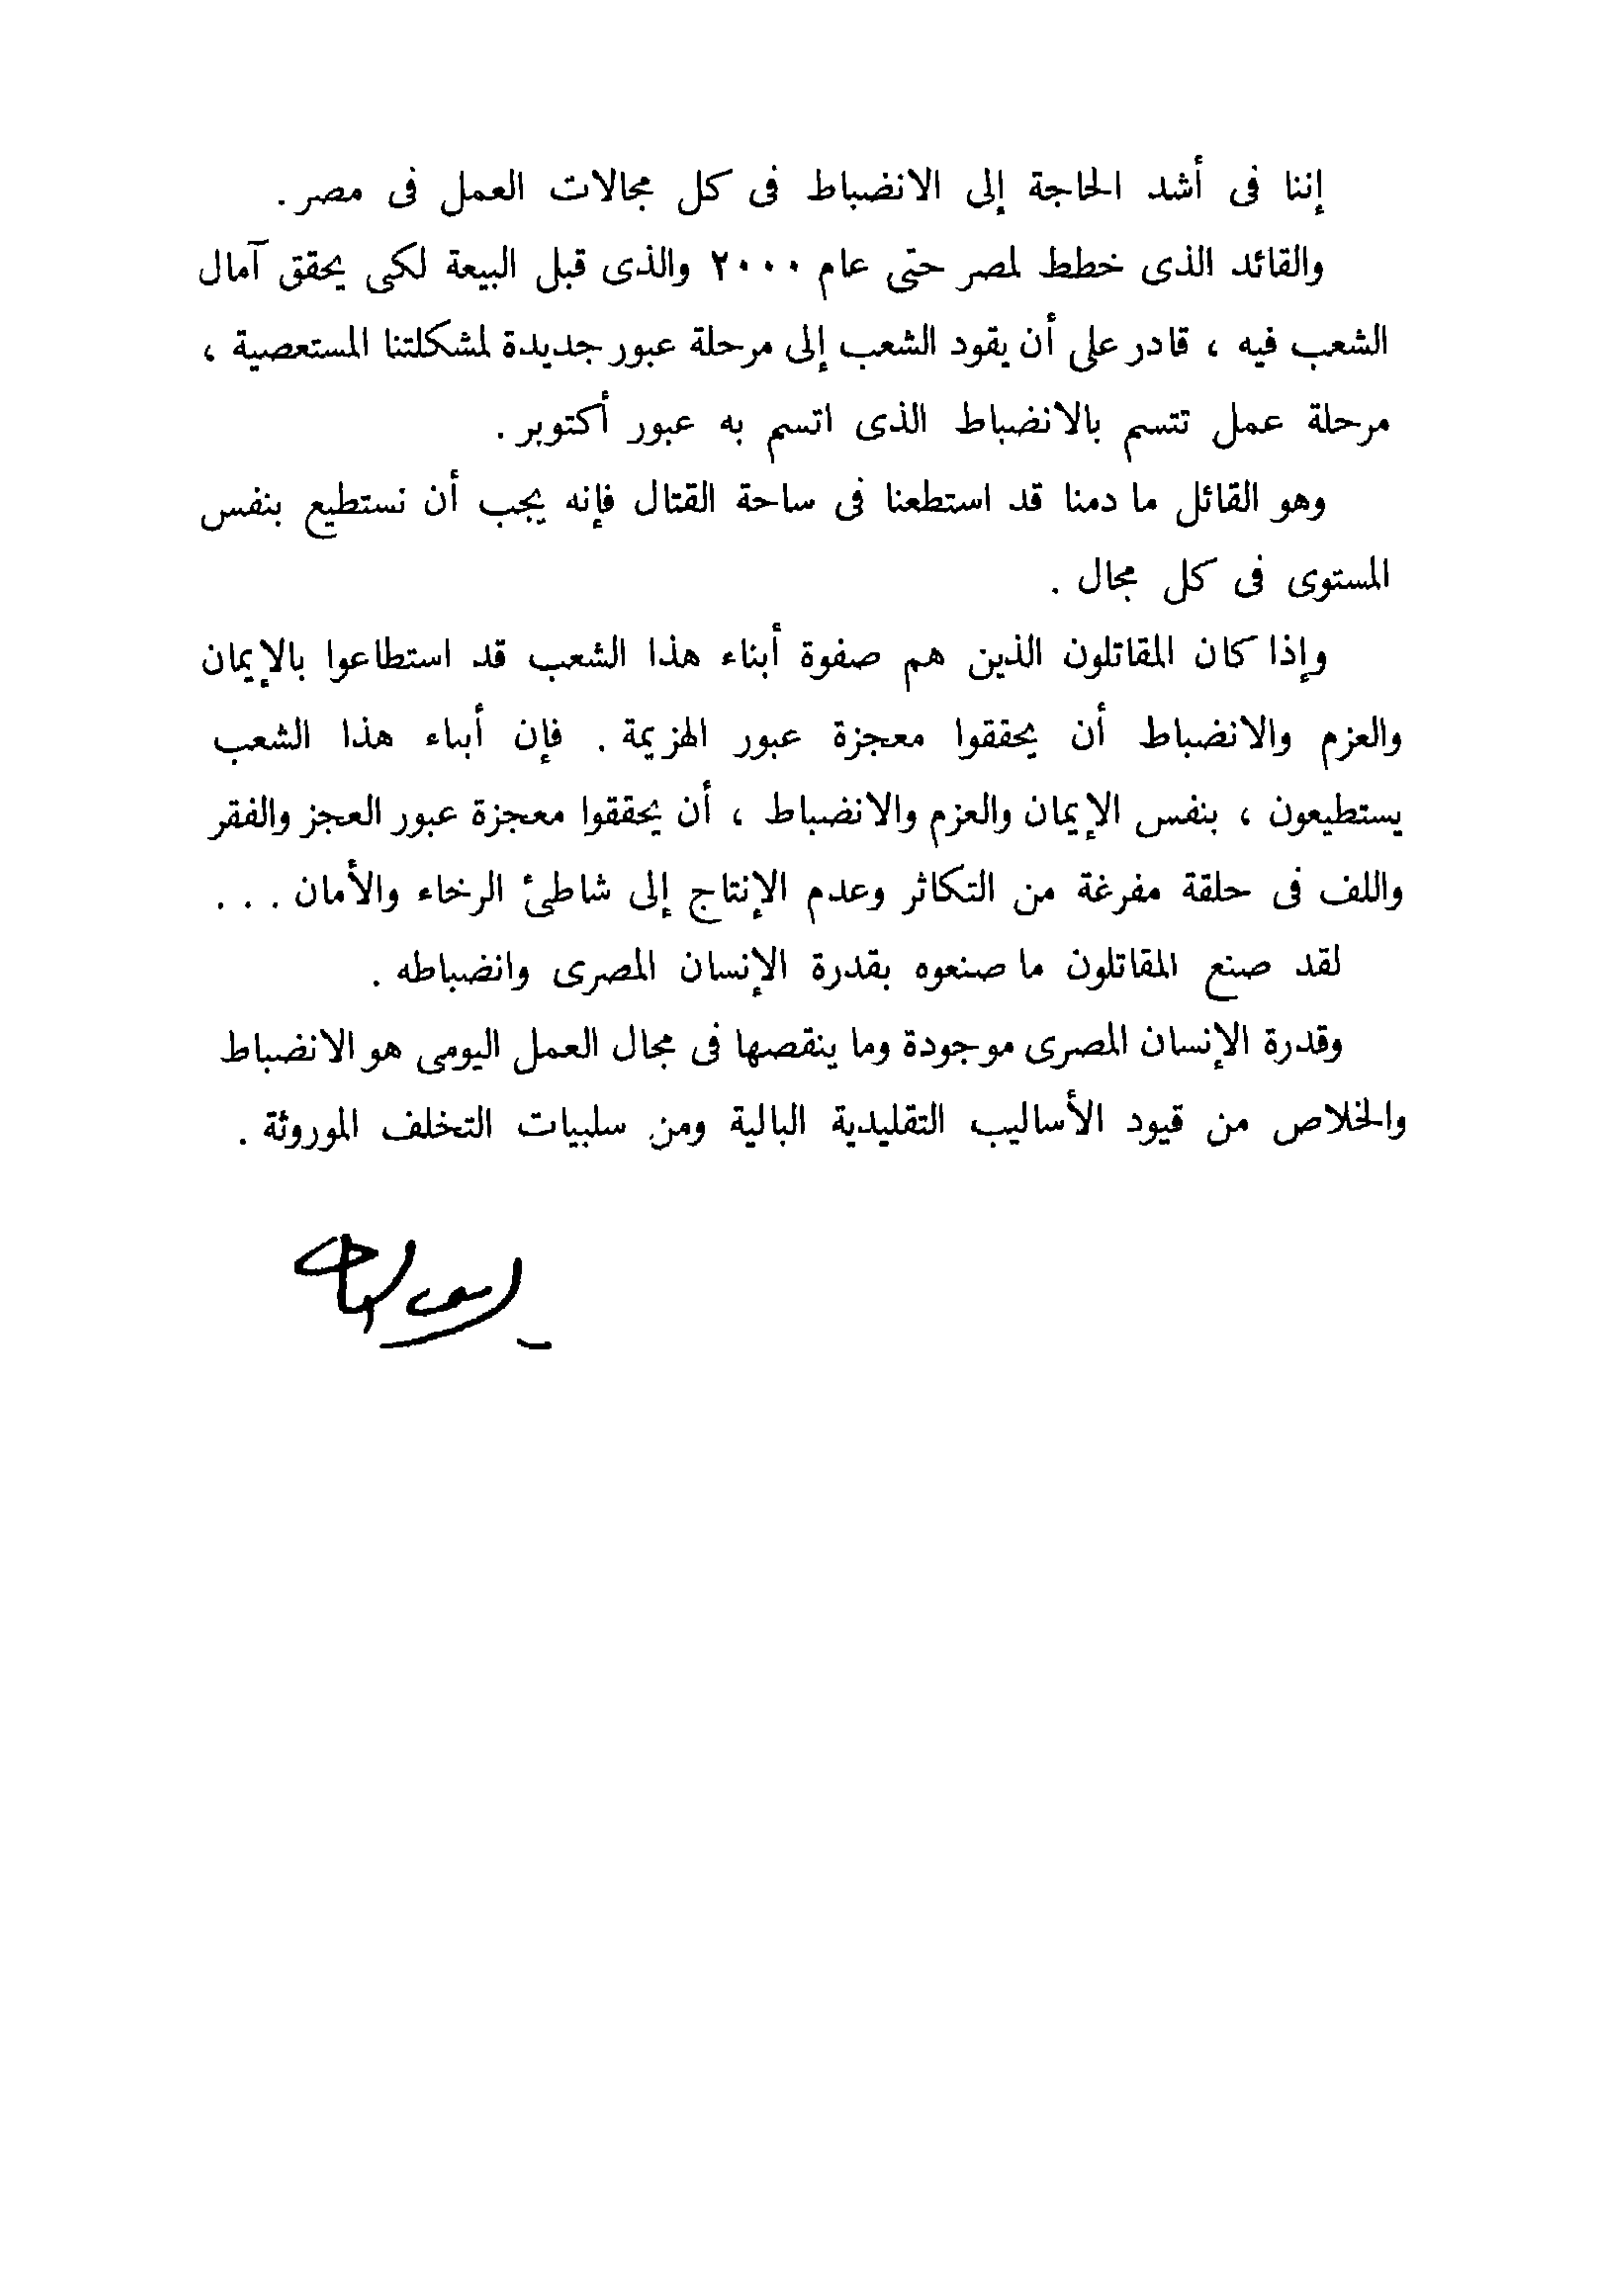 إننا فى أشد الحاجة إلى الانضباط فى كل مجالات العمل فى مصر .
والقائد الذى خطط لمصر حتى عام ٢٠٠٠ والذى قبل البيعة لكى يحقق آمال
الشعب فيه ، قادر على أن يقود الشعب إلى مرحلة عبور جديدة لمشكلتنا المستعصية ،
مرحلة عمل تتسم بالانضباط الذى اتسم به عبور أكتوبر .
وهو القائل ما دمنا قد استطعنا فى ساحة القتال فإنه يجب أن نستطيع بنفس
المستوى فى كل مجال .
وإذا كان المقاتلون الذين هم صفوة أبناء هذا الشعب قد استطاعوا بالإيمان
والعزم والانضباط أن يحققوا معجزة عبور الهزيمة . فإن أبناء هذا الشعب
يستطيعون ، بنفس الإيمان والعزم والانضباط ، أن يحققوا معجزة عبور العجز والفقر
واللف فى حلقة مفرغة من التكاثر وعدم الإنتاج إلى شاطئ الرخاء والأمان . . .
لقد صنع المقاتلون ما صنعوه بقدرة الإنسان المصرى وانضباطه .
وقدرة الإنسان المصرى موجودة وما ينقصها فى مجال العمل اليومى هو الانضباط
والخلاص من قيود الأساليب التقليدية البالية ومن سلبيات التخلف الموروثة .